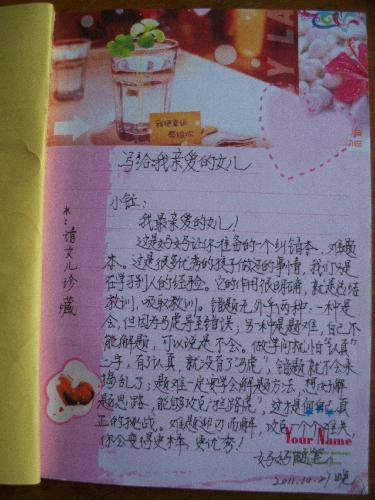 我把幸运
带给你
写给我亲爱的女儿
小钰:
我最亲爱的女儿!
这是妈妈让你准备的一个纠错本、难题
本。这是很多优秀的孩子做过的事情,我们是
在学别人的经验。它的作用很明确,就是总结
教训,吸取教训。错题无外乎两种:一种是
会,但因为马虎导至错误;另一种是题难,自己不
能解题,可以说是不会。做学问就怕“认真”
二字,有了认真,就没有了“马虎”,错题就不会来
捣乱了;题难一定要学会解题方法,想好解
题思路,能够攻克“拦路虎”,这才是你自己真
正的挑战。难题迎刃而解,攻克一个个难关,
你会变得更棒、更优秀!
Your Name
妈妈
2011.10.21晚
请女儿珍藏